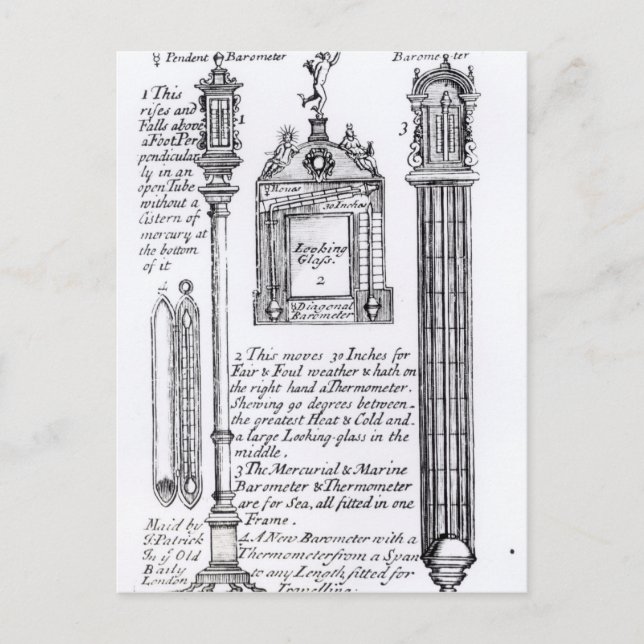 ☿ Pendent Barometer
Barometer
1 This
rises and
Falls above
a Foot Per
pendicular
ly in an
open Tube
without a
Cistern of
mercury at
the bottom
of it
1
3
☿ Moves
30 Inches
Looking
Glass.
2
☿ Diagonal
Barometer
4
2 This moves 30 Inches for
Fair & Foul weather & hath on
the right hand a Thermometer.
Shewing 90 degrees between
the greatest Heat & Cold and
a large Looking-glass in the
middle.
3 The Mercurial & Marine
Barometer & Thermometer
are for Sea, all fitted in one
Frame.
4. A New Barometer with a
Thermometer from a Span
to any Length, fitted for
Travelling.
Maid by
J. Patrick
In yͤ Old
Baily
London